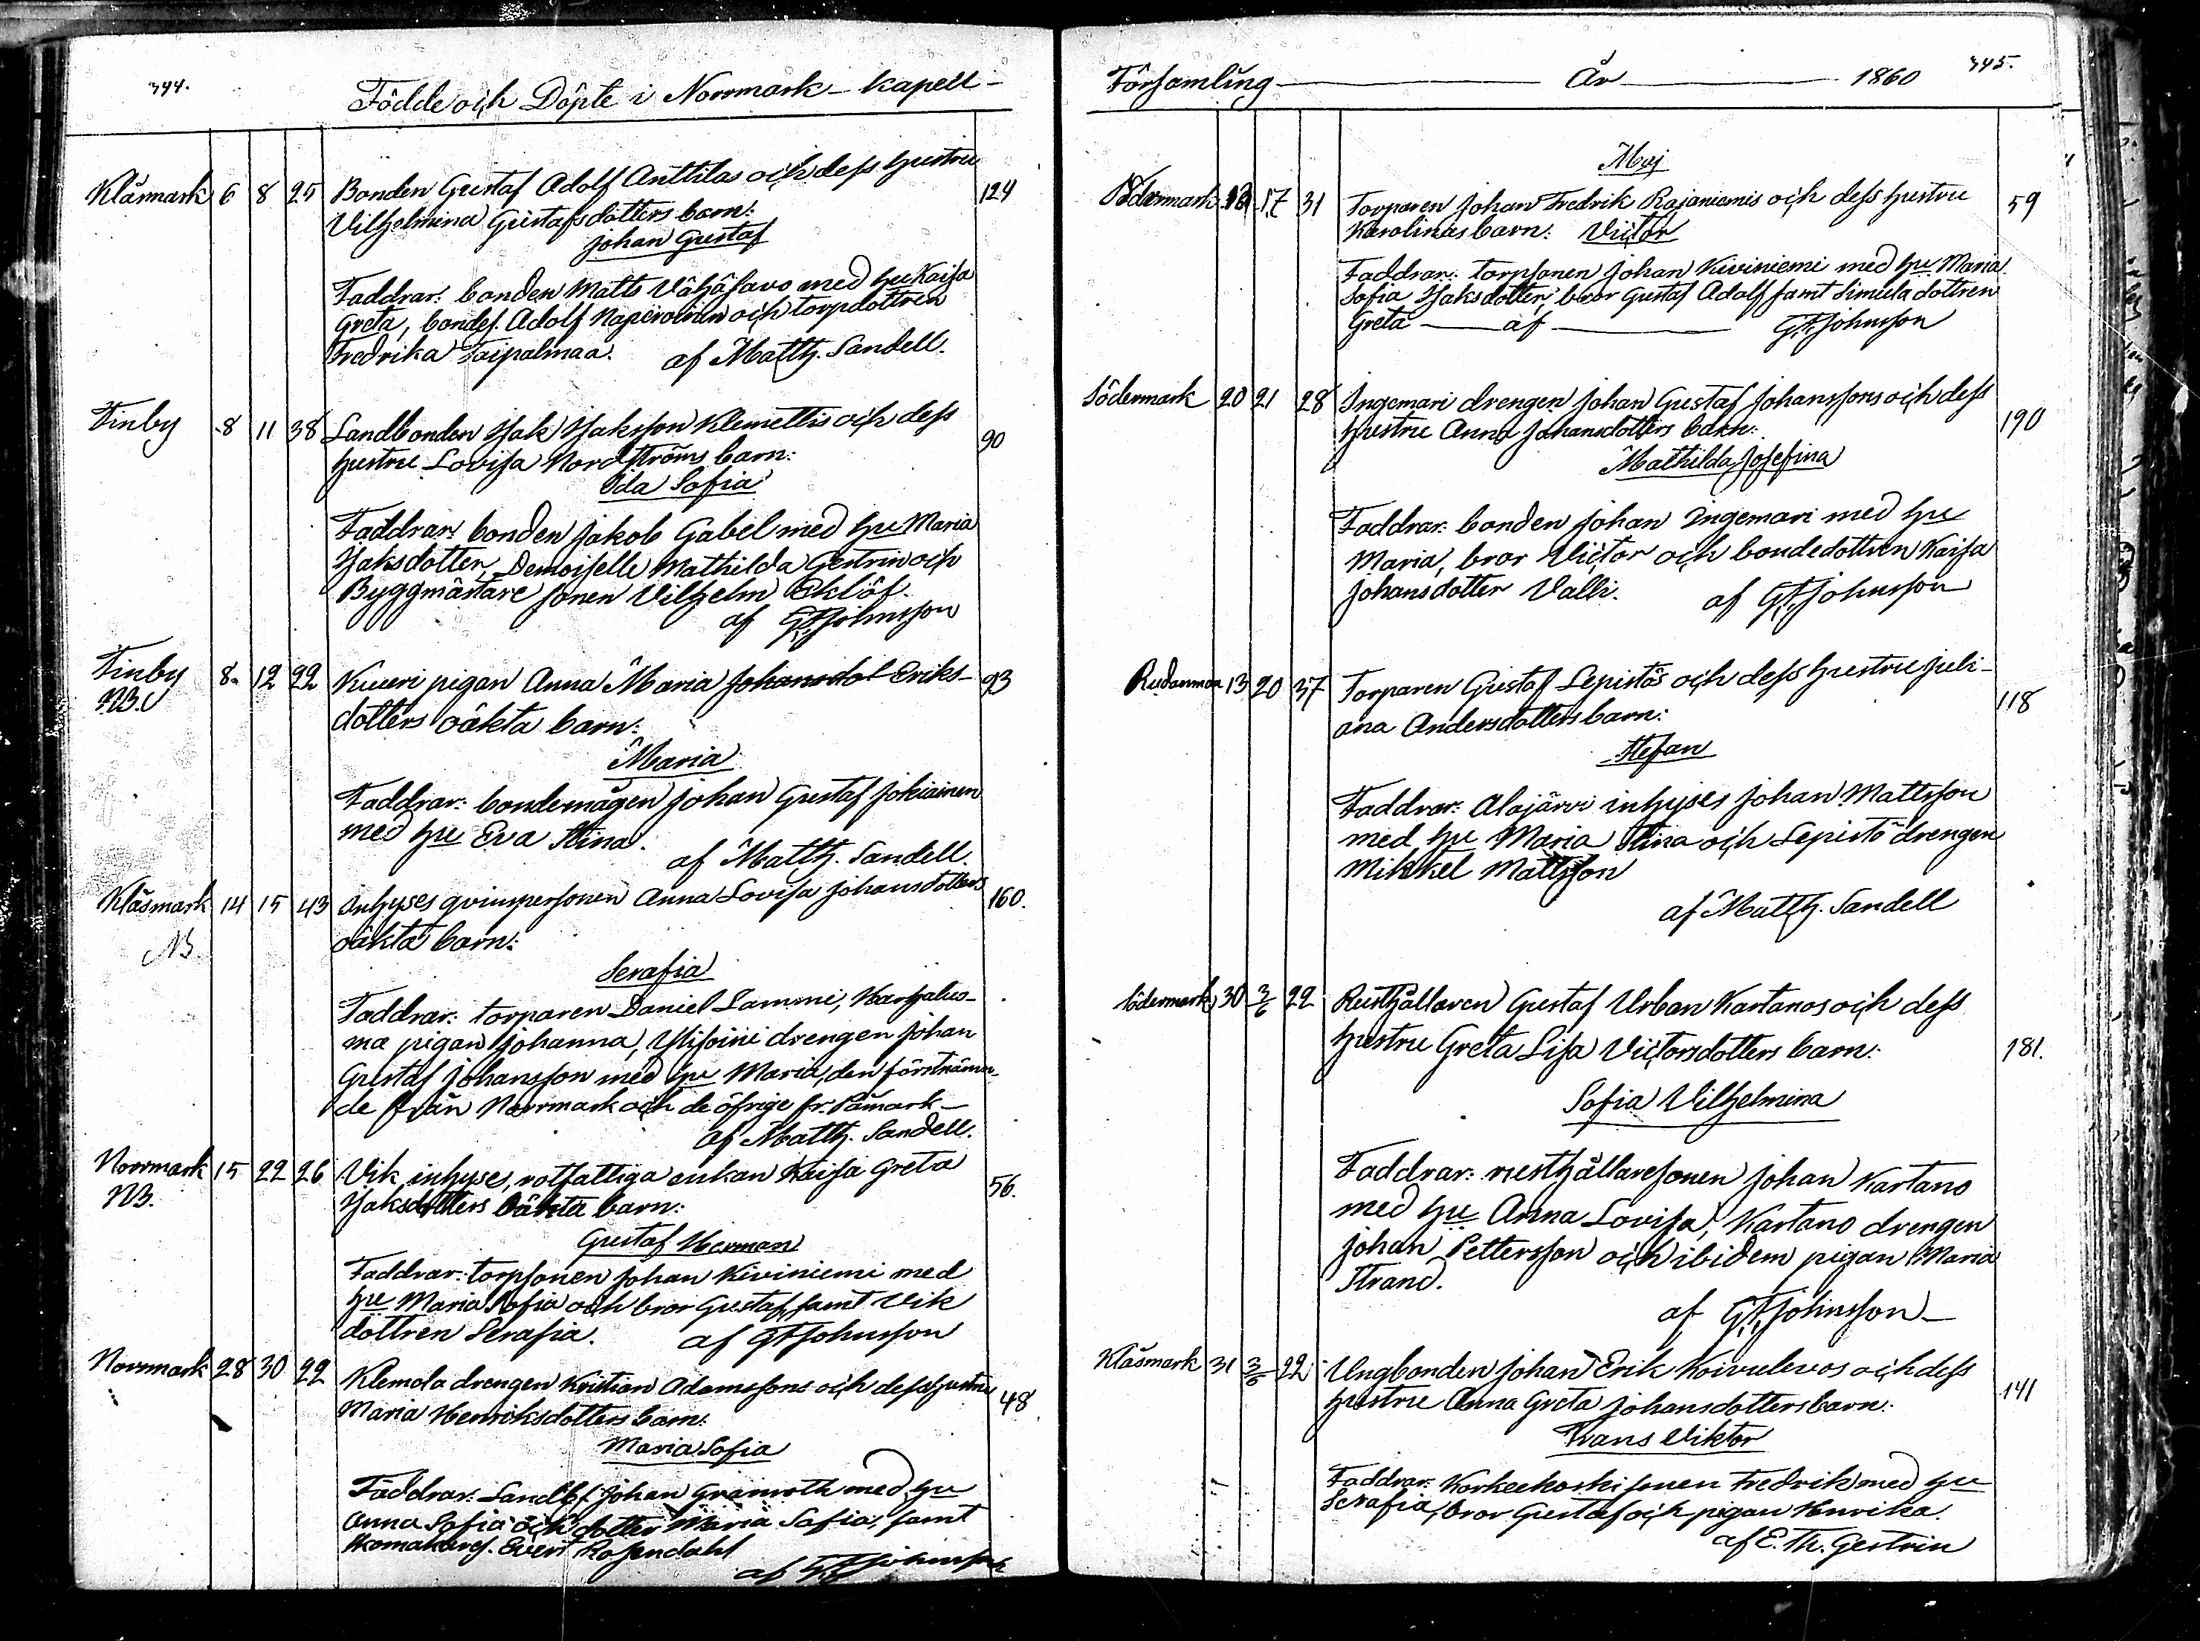 344.
Födde och Döpte i Norrmark - kapell -
Klåsmark 6 8 25 Bonden Gustaf Adolf Anttilas och dess hustru 124
Vilhelmina Gustafsdotters barn:
Johan Gustaf
Faddrar: bonden Matts Vähäsavo med hu Kaisa
Greta, bondes. Adolf och torpdottren
Fredrika Taipalmaa. af Matth. Sandell.
Finby 8 11 38 Landbonden Isak Isaksson Klemettis och dess 90
hustru Lovisa Nordströms barn:
Ida Sofia
Faddrar: bonden Jakob Gabel med hu Maria
Isaksdotter, Demoiselle Mathilda Gestrin och
Byggmästare sonen Vilhelm Eklöf.
af GFJohnsson
Finby 8 12 22 Kuuri pigan Anna Maria Johansdot Eriks- 93
NB.
dotters oäkta barn:
Maria
Faddrar: bondemågen Johan Gustaf Jokiainen
med hu Eva Stina.
af Matth. Sandell.
Klåsmark 14 15 43 Inhyses qvinspersonen Anna Lovisa Johansdotters 160.
NB. oäkta barn:
Serafia
Faddrar: torparen Daniel Lammi, Karhalus-
ma pigan Johanna, Ylisoini drengen Johan
Gustaf Johansson med hu Maria, den förstnämn-
de från Norrmark och de öfrige fr. Påmark -
af Matth. Sandell.
Norrmark 15 22 26 Vik inhyse, rotfattiga enkan Kaisa Greta 56.
NB. Isaksdotters oäkta barn:
Gustaf Herman
Faddrar: torpsonen Johan Kiviniemi med
hu Maria Sofia och bror Gustaf, samt Vik
dottren Serafia. af GFJohnsson
Norrmark 28 30 22 Klemola drengen Kristian Adamssons och dess hustru 48
Maria Henriksdotters barn:
Maria Sofia
Faddrar: Landb.s. Johan Granroth med hu
Anna Sofia och dotter Maria Sofia, samt
skomakares. Evert Rosendahl
af GFJohnsson
Församling - År - 1860 345.
Maj
Södermark 13 17 31 Torparen Johan Fredrik Rajaniemis och dess hustru 59
Karolinas barn: Victor
Faddrar: torpsonen Johan Kiviniemi med hu Maria
Sofia Isaksdotter, bror Gustaf Adolf samt Simula dottren
Greta - af - GFJohnsson
Södermark 20 21 28 Ingemari drengen Johan Gustaf Johanssons och dess 190
hustru Anna Johansdotters barn:
Mathilda Josefina
Faddrar: bonden Johan Ingemari med hu
Maria, bror Victor och bondedottren Kaisa
Johansdotter Valli. af GFJohnsson
Rudanmaa 13 20 37 Torparen Gustaf Lepistös och dess hustru Juli- 118
ana Andersdotters barn:
Stefan
Faddrar: Alajärvi inhyses Johan Mattsson
med hu Maria Stina och Lepistö drengen
Mikkel Mattsson
af Matth. Sandell
Södermark 30 3/6 22 Rusthållaren Gustaf Urban Kartanos och dess 181.
hustru Greta Lisa Victorsdotters barn:
Sofia Vilhelmina
Faddrar: rusthållaresonen Johan Kartano
med hu Anna Lovisa, Kartano drengen
Johan Pettersson och ibidem pigan Maria
Strand.
af GFJohnsson -
Klåsmark 31 3/6 22 Ungbonden Johan Erik Koivulevos och dess 141
hustru Anna Greta Johansdotters barn:
Frans Viktor
Faddrar: Korkeekoski sonen Fredrik med hu
Serafia, bror Gustaf och pigan Henrika.
af E. Th. Gestrin